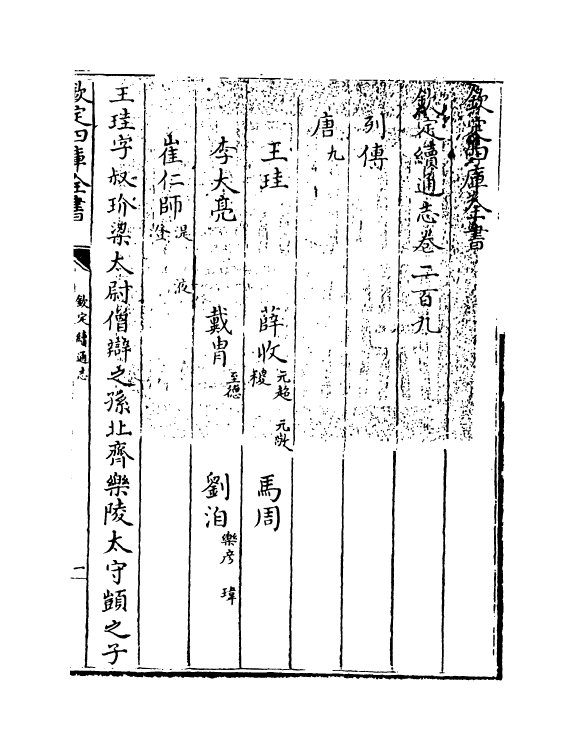 欽定四庫全書
欽定續通志卷二百九
列傳
唐九
王珪 薛收元超 元敬 稷 馬周
李大亮 戴胄至德 劉洎樂彦瑋
崔仁師湜 液 滌
王珪字叔玠梁太尉僧辯之孫北齊樂陵太守顗之子
欽定四庫全書
欽定續通志
一